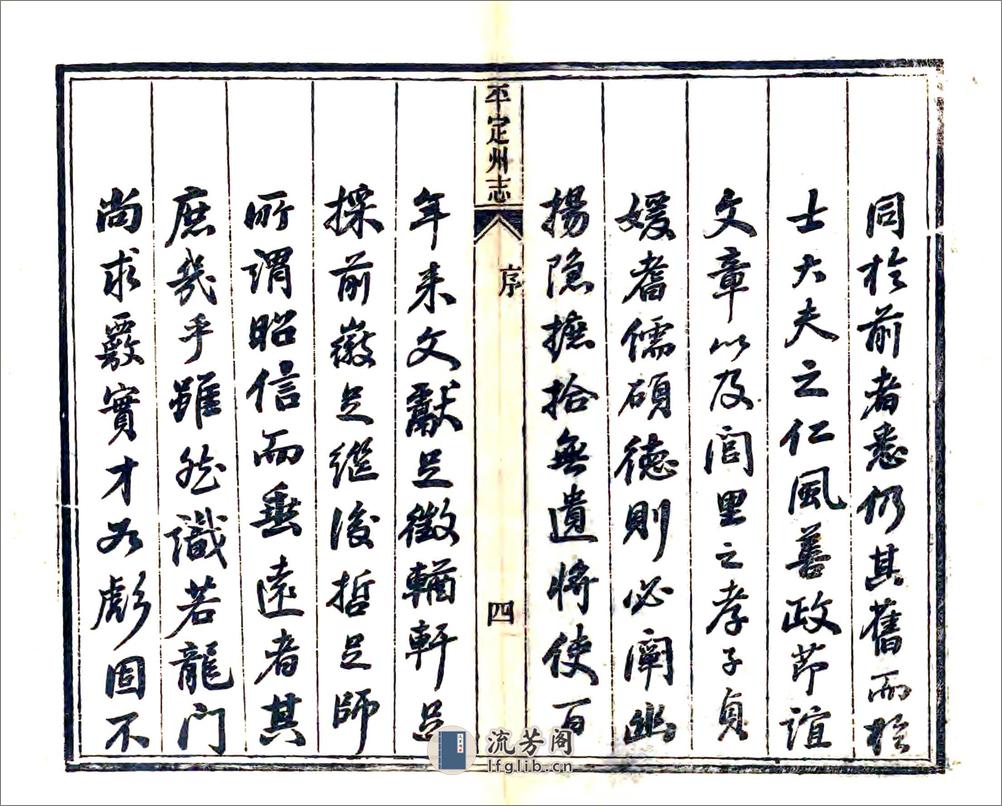 同於前者悉仍其舊而於
士大夫之仁風善政節誼
文章以及閭里之孝子貞
媛耆儒碩德則必闡幽
揚隱摭拾無遺將使百
平定州志
序
四
年来文獻足徵輶軒足
採前徽足繼後哲足師
所謂昭信而垂遠者其
庶幾乎雖然識若龍门
尚求覈實才如彪固不
流芳阁
lfglib.cn